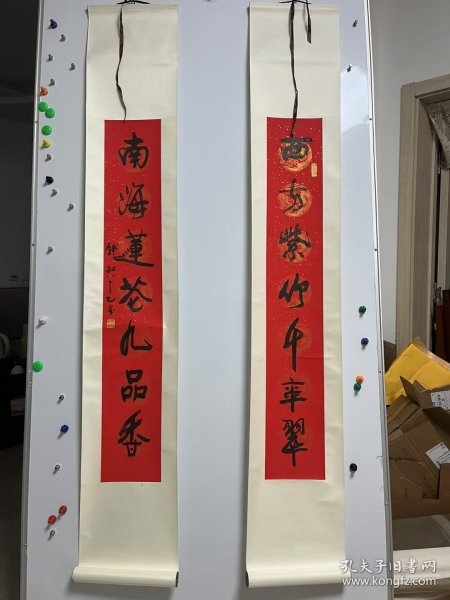 西方紫竹千年翠
南海蓮花九品香
孔夫子旧书网
www.kongfz.com